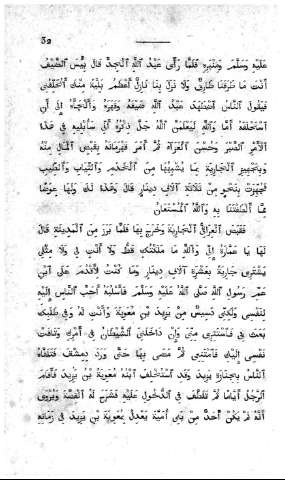 32
عليه وسلم ومنبره فلما رأى عبد الله الجد قال بئس الضيف
أنت ما طرقنا طارق ولا نزل بنا نازل أعظم بلية منك أتحلفني
فيقول الناس استهتد عبد الله ضيفه وقهره وألجأه إلى أن
استحلفه أما والله ليعلمن الله جل ذكره أني سأبليه في هذا
الأمر الصبر وحسن العزاء ثم أمر قهرمانه بقبض المال منه
وبتجهيز الجارية بما يشبهها من الخدم والثياب والطيب
فجهزت بنحو من ثلاثة آلاف دينار قال وهذا لك ولها عوضا
مما ألطفتنا به والله المستعان
فقبض العراقي الجارية وخرج بها فلما برز من المدينة قال
لها يا عمارة إني والله ما ملكتك قط ولا أنت لي ولا مثلي
يشتري جارية بعشرة آلاف دينار وما كنت لأقدم على ابن
عم رسول الله صلى الله عليه وسلم فأسلبه أحب الناس إليه
لنفسي ولكني دسيس من يزيد بن معوية وأنت له وفي طلبك
بعث بي فاستتري مني وإن داخلني الشيطان في أمرك وتاقت
نفسي إليك فامتنعي ثم مضى بها حتى ورد دمشق فتلقاه
الناس بجنازة يزيد وقد استخلف ابنه معوية بن يزيد فأقام
الرجل أياما ثم تلطف في الدخول عليه فشرح له القصة ويروى
أنه لم يكن أحد من بني أمية يعدل بمعوية بن يزيد في زمانه